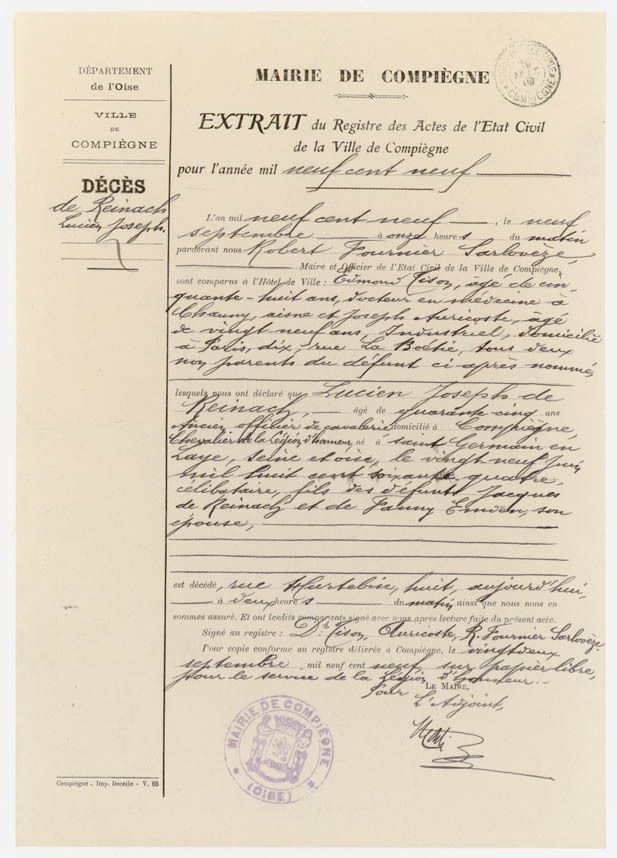 DÉPARTEMENT
de l'Oise
VILLE
DE
COMPIÈGNE
DÉCÈS
de Reinach
Lucien Joseph.
MAIRIE DE COMPIÈGNE
COMPIÈGNE
EXTRAIT du Registre des Actes de l'Etat Civil
de la Ville de Compiègne
pour l'année mil neuf cent neuf
L'an mil neuf cent neuf, le neuf
septembre à onze heures du matin
pardevant nous Robert Fournier Sarlovèze,
Maire et Officier de l'Etat Civil de la Ville de Compiègne,
sont comparus à l'Hôtel de Ville : Edmond Tison, âgé de cin-
quante-huit ans, docteur en médecine à
Chauny, aisne et Joseph Auricoste, âgé
de vingt neuf ans, Industriel, domicilié
à Paris, dix, rue La Boëtie, tous deux
non parents du défunt ci-après nommé,
lesquels nous ont déclaré que Lucien Joseph de
Reinach, âgé de quarante cinq ans
Ancien officier de cavalerie domicilié à Compiègne,
Chevalier de la Légion d'honneur né à Saint Germain en
Laye, Seine et oise, le vingt neuf Juin
mil huit cent soixante quatre,
célibataire, fils des défunts Jacques
de Reinach et de Fanny Emden, son
épouse,
est décédé, rue Hurtebise, huit, aujourd'hui,
à deux heures du matin, ainsi que nous nous en
sommes assuré. Et ont lesdits comparants signé avec nous après lecture faite du présent acte.
Signé au registre : Dr Tison, Auricoste, R. Fournier Sarlovèze.
Pour copie conforme au registre délivrée à Compiègne, le vingt deux
septembre mil neuf cent neuf sur papier libre,
pour le service de la Légion d'honneur.
LE MAIRE,
Pour
L'Adjoint,
MAIRIE DE COMPIÈGNE
(OISE)
Compiègne. - Imp. Decelle - V. 85